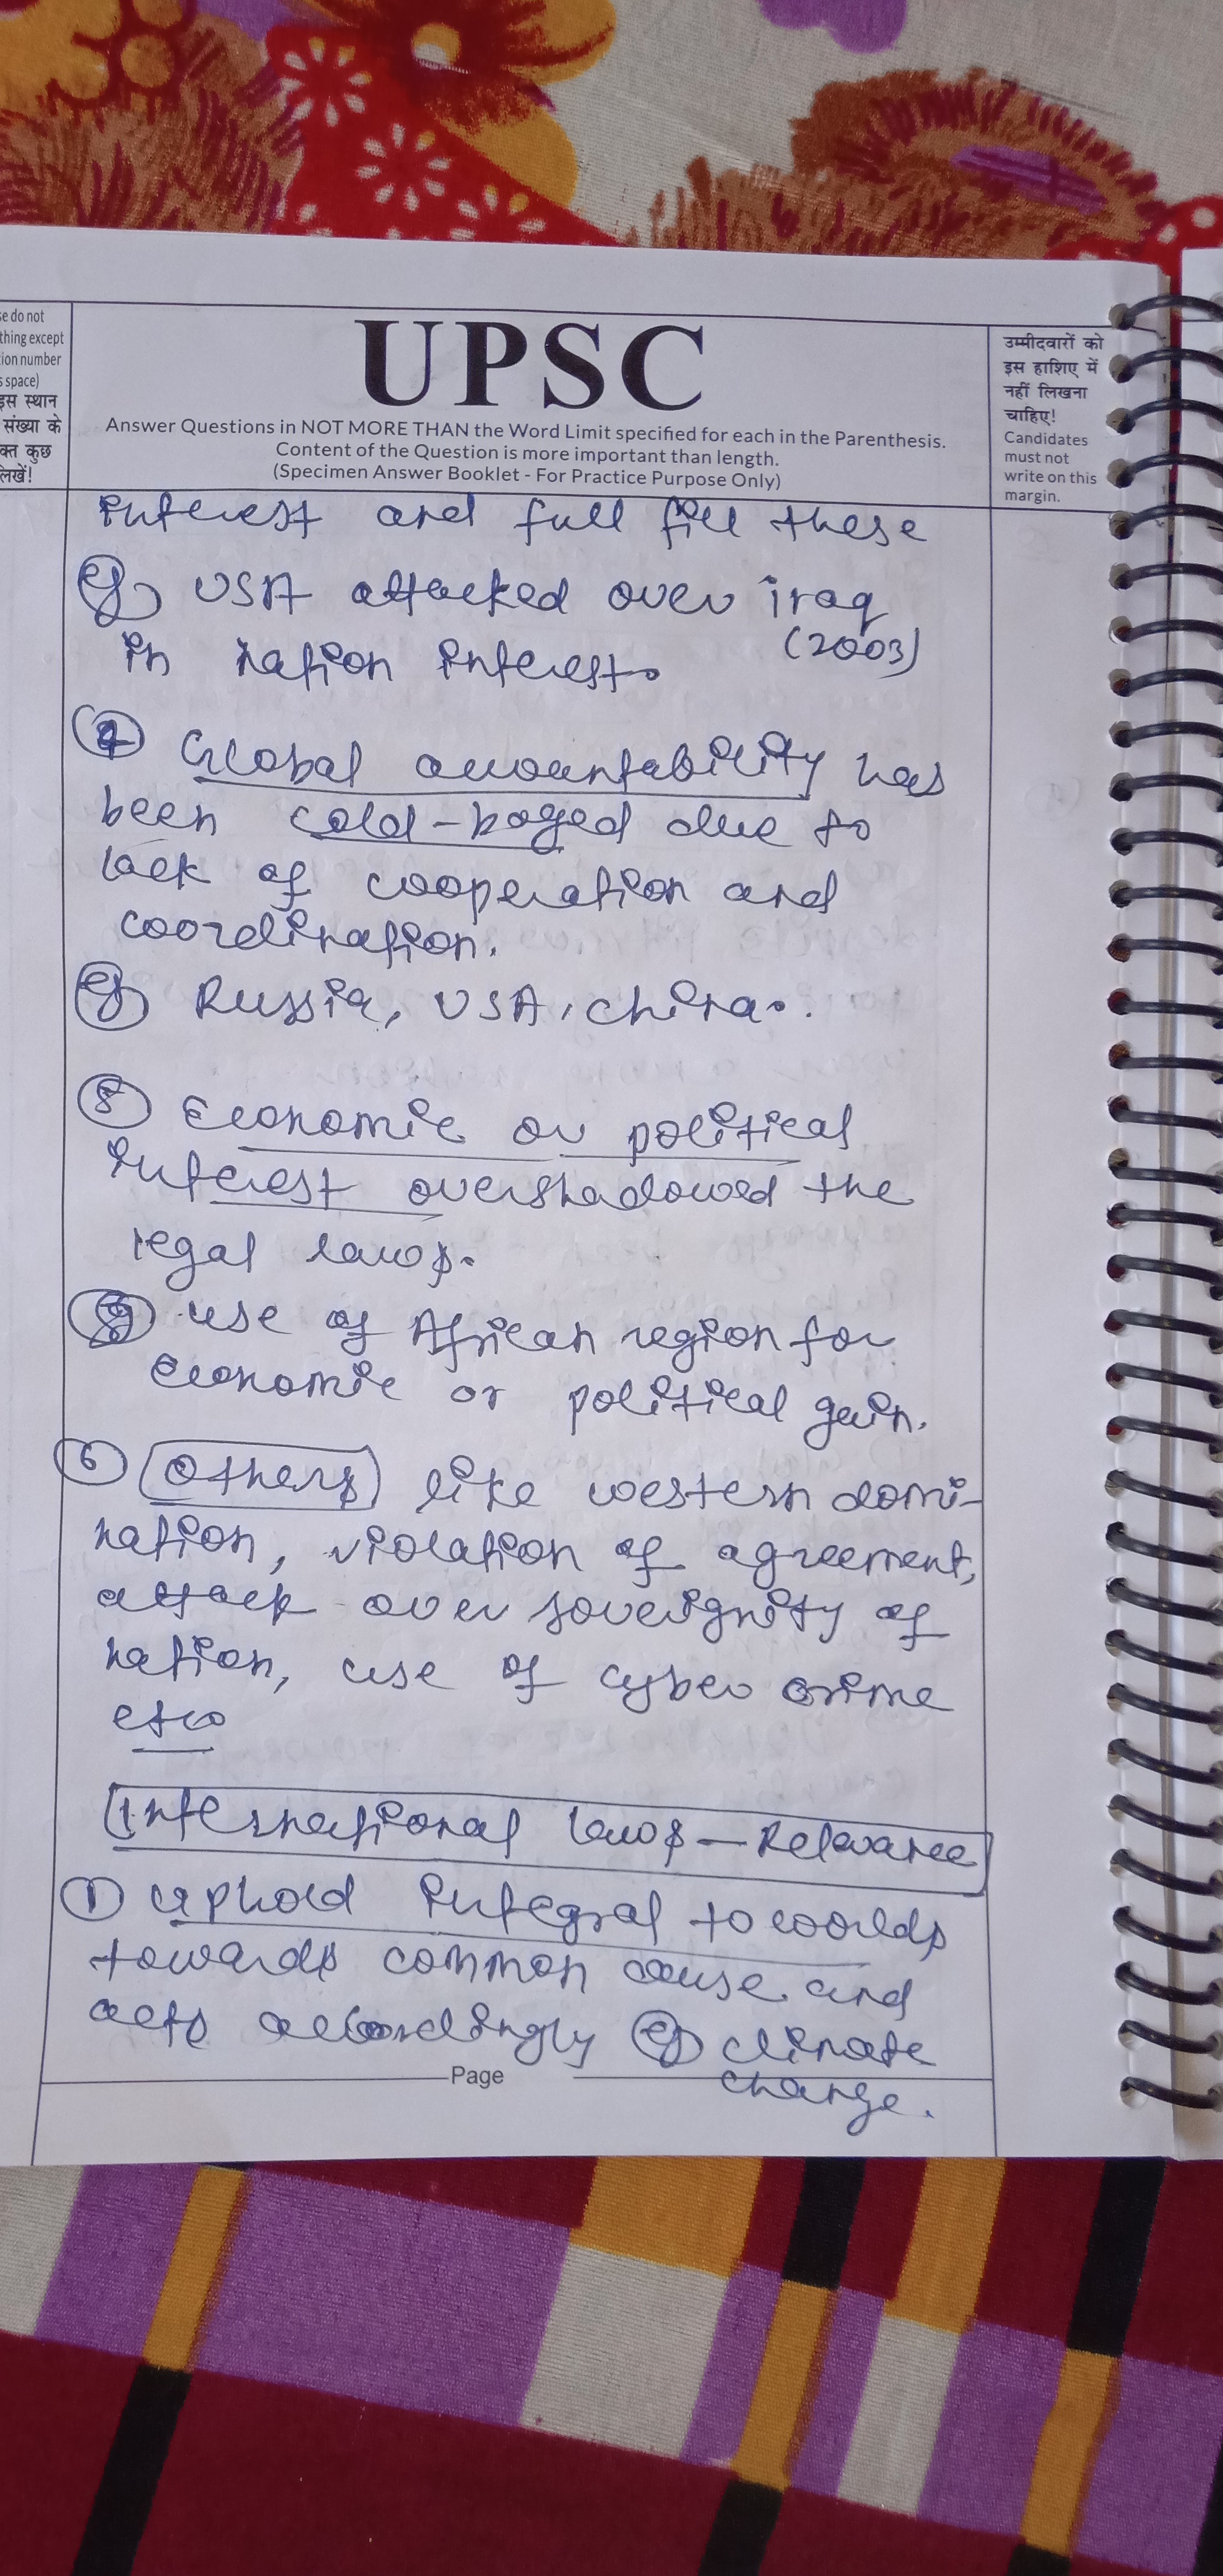 se do not
thing except
ion number
s space)
इस स्थान
संख्या के
क्त कुछ
लिखें!
UPSC
Answer Questions in NOT MORE THAN the Word Limit specified for each in the Parenthesis.
Content of the Question is more important than length.
(Specimen Answer Booklet - For Practice Purpose Only)
उम्मीदवारों को
इस हाशिए में
नहीं लिखना
चाहिए!
Candidates
must not
write on this
margin.
interest and full fill these
eg) USA attacked over iraq
(2003)
in nation interest.
4 Global accountability has
been cold-boxed due to
lack of cooperation and
coordination.
eg) Russia, USA, China.
5 Economic or political
interest overshadowed the
legal laws.
eg) use of African region for
economic or political gain.
6 Others like western domi-
nation, violation of agreement,
attack over soverignity of
nation, use of cyber crime
etc
International laws – Relevance
1 uphold integral to worlds
towards common cause and
acts accordingly eg) climate
change.
Page